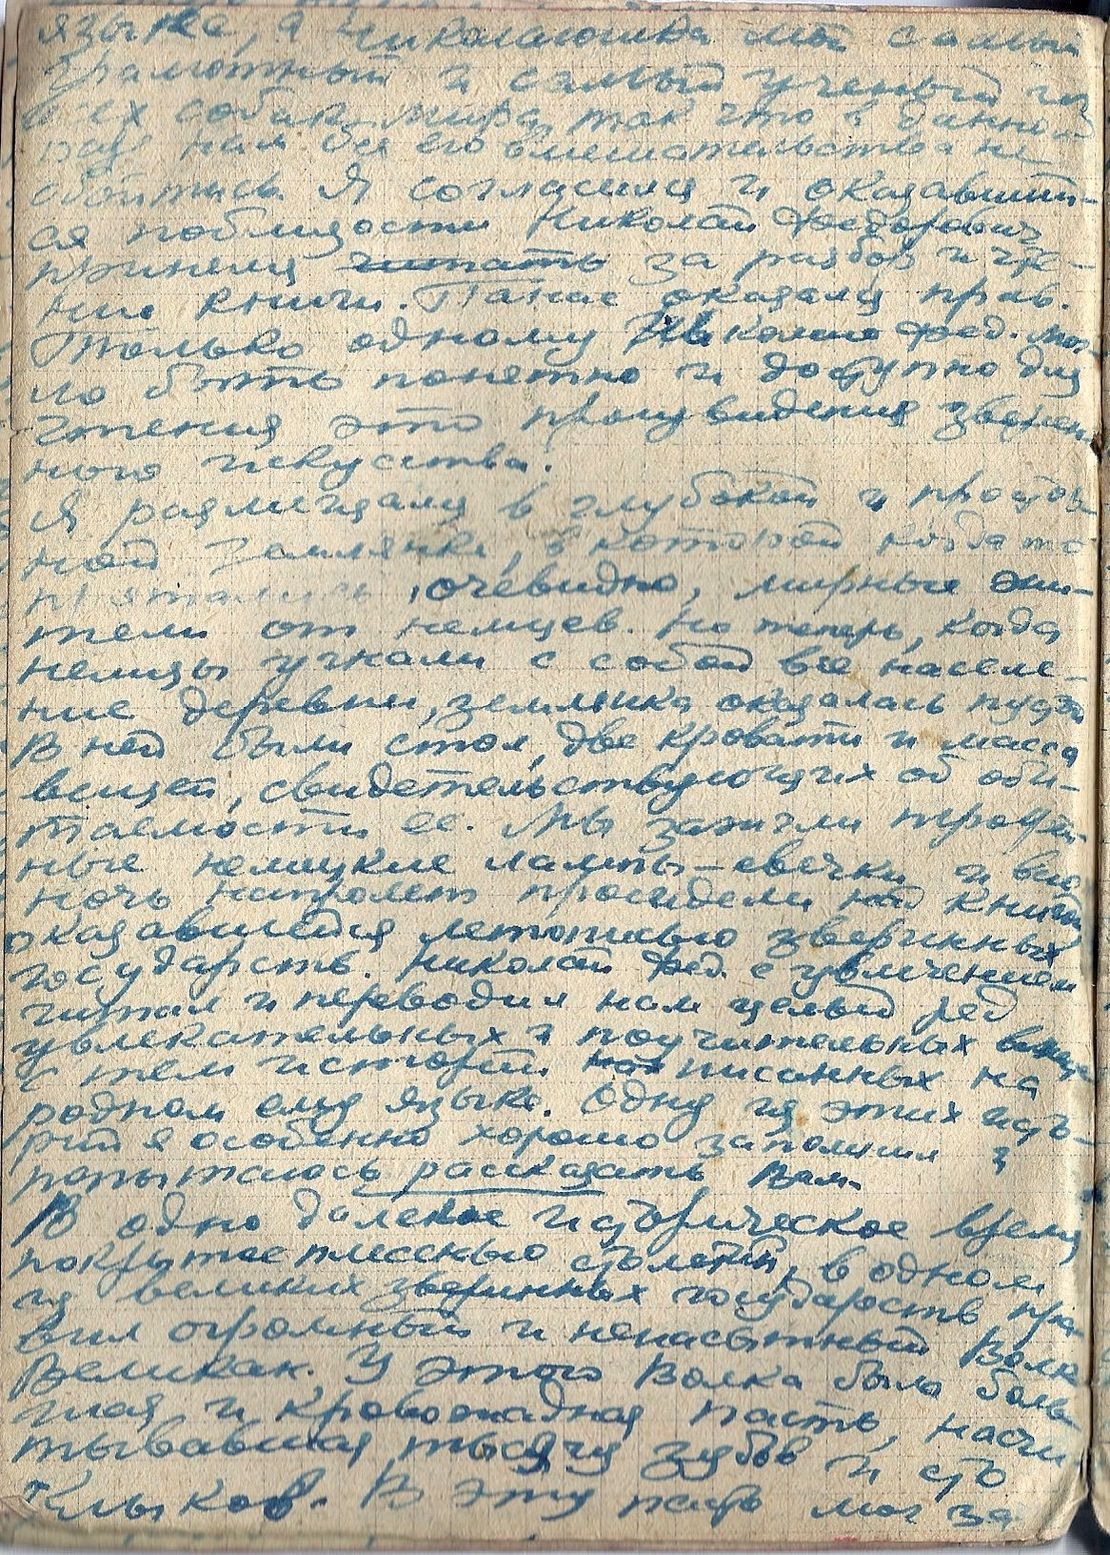 языке, а Николаюшка мой самый
грамотный и самый ученый из
всех собак мира, так что в данном
разе нам без его вмешательства не
обойтись. Я согласился и оказавший-
ся поблизости Николай Федорович
принялся читать за разбор и чте-
ние книги. Панас оказался прав.
Только одному Николаю Фед. мог-
ло быть понетно и доступно для
чтения это произведения зверин-
ного искуства.
Я размещался в глубокой и простор-
ной землянке, в которой когда то
прятались, очевидно, мирные жи-
тели от немцев. Но теперь, когда
немцы угнали с собой все населе-
ние деревни, землянка оказалась пуста
В ней были стол, две кровати и масса
вещей, свидетельствующих об оби-
таемости ее. Мы зажгли трофей-
ные немецкие лампы-свечки и всю
ночь напролет просидели над книгой
оказавшейся летописью звериных
государств. Николай Фед. с увлечением
читал и переводил нам целый ред
увлекательных и поучительных вместе
с тем историй написанных на
родном ему языке. Одну из этих исто-
рий я особенно хорошо запомнил и
попытаюсь рассказать Вам.
В одно далекое историческое время
покрытое плесенью столетий, в одном
из великих звериных государств пра-
вил огромный и ненасытный Волк
Великан. У этого Волка была боль-
шая и кровожадная пасть, насчи-
тывавшая тысячу зубов и сто
клыков. В эту пасть мог за-